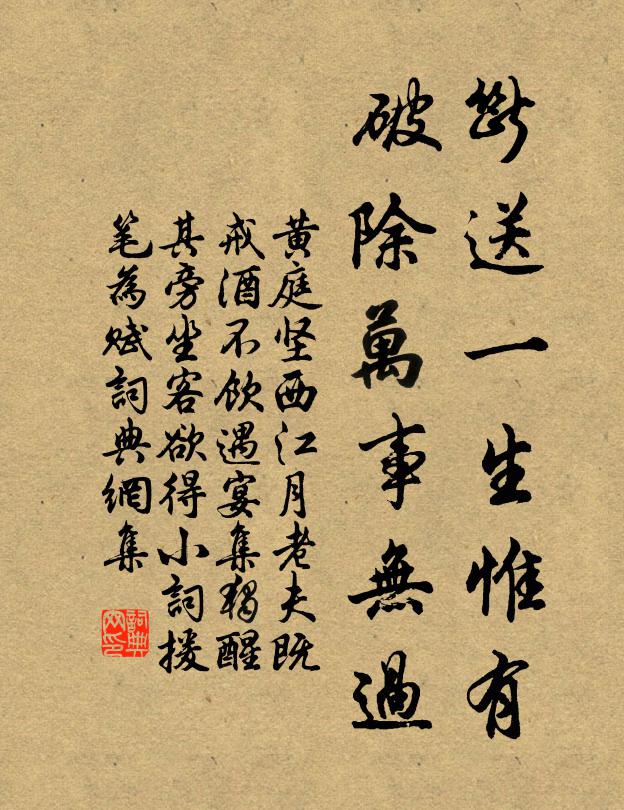 斷送一生惟有
破除萬事無過
黄庭坚西江月老夫既
戒酒不飲遇宴集獨醒
其旁坐客欲得小詞援
笔為赋詞典網集
詞典
网印